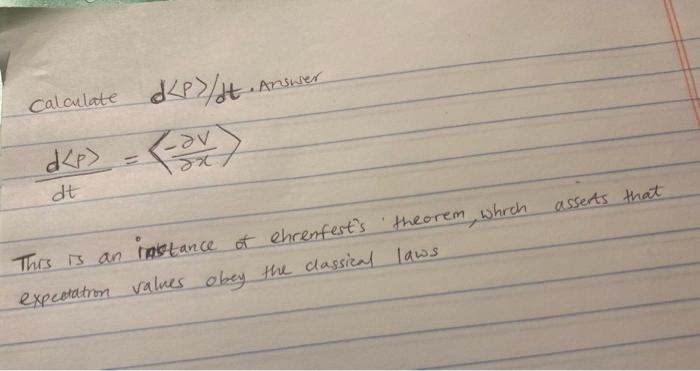 Calculate d<p>/dt. Answer
d<p>/dt = <-∂V/∂x>
This is an instance of ehrenfest's theorem, which asserts that
expectation values obey the classical laws